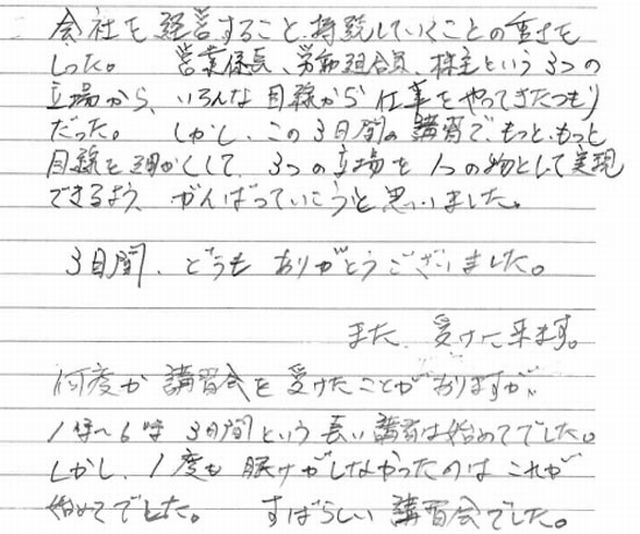 会社を経営すること、持続していくことの重さを
しった。 営業係長、労働組合員、株主という3つの
立場から、いろんな目線から仕事をやってきたつもり
だった。 しかし、この3日間の講習で、もっと、もっと
目線を細かくして、3つの立場を1つの物として実現
できるよう、がんばっていこうと思いました。
3日間、どうもありがとうございました。
また、受けに来ます。
何度か講習会を受けたことがありますが、
1時〜6時 3日間という長い講習は始めてでした。
しかし、1度も眠けがしなかったのはこれが
始めてでした。 すばらしい講習会でした。